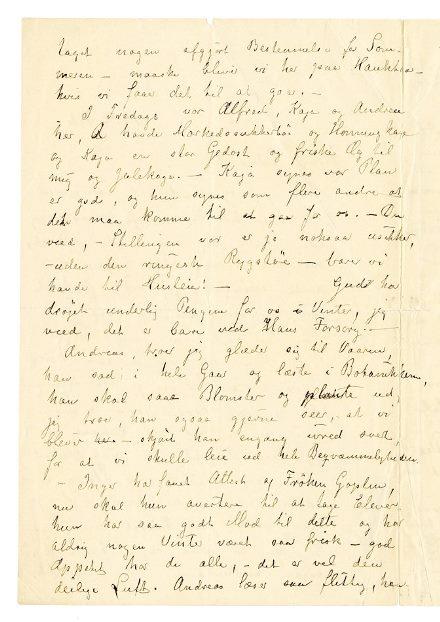 taget nogen afgjørt Bestemmelse for Som-
meren - maaske bliver vi her paa Haukto -
hvis vi faar det til at gaa. -
I Fredags var Alfred, Kaja og Andrea
her, A havde Markedssukkertøi og Honningkage
og Kaja en stor Gedost og friske Æg til
mig og Julekage. - Kaja synes vor Plan
er gode, og hun synes som flere andre at
det maa komme til at gaa for os. - Du
veed, - Stillingen vor er jo noksaa usikker,
- uden den ringeste Rygstøe - bare vi
havde til Huslei! - Gud har
drøiet underlig Pengene for os i Vinter, jeg
veed, det er bare ved Hans Forsorg. -
Andreas, tror jeg glæder sig til Vaaren,
han sad i hele Gaar og læste i Botanikken,
han skal saa Blomster og plante ud,
jeg tror, han ogsaa gjerne seer, at vi
bliver - skjønt han engang vred svor,
for at vi skulle leie ud hele
- Inger har faaet Attest af Frøken
nu skal hun avertere til at tage Elever,
hun har saa godt Mod til dette og har
aldrig nogen Vinter været saa frisk - god
Appetit har de alle, - det er vel den
deilige Luft. Andreas læser saa flittig, han